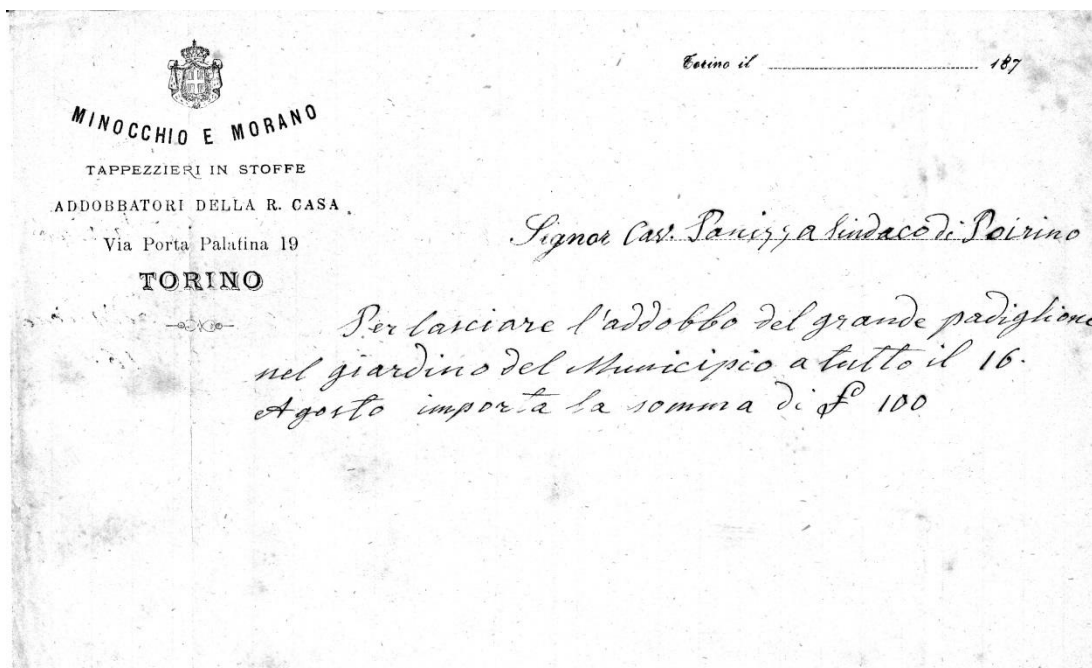 Torino il 187
MINOCCHIO E MORANO
TAPPEZZIERI IN STOFFE
ADDOBBATORI DELLA R. CASA
Via Porta Palatina 19
TORINO
Signor Cav. Panizza Sindaco di Poirino
Per lasciare l'addobbo del grande padiglione
nel giardino del Municipio a tutto il 16.
Agosto importa la somma di £ 100